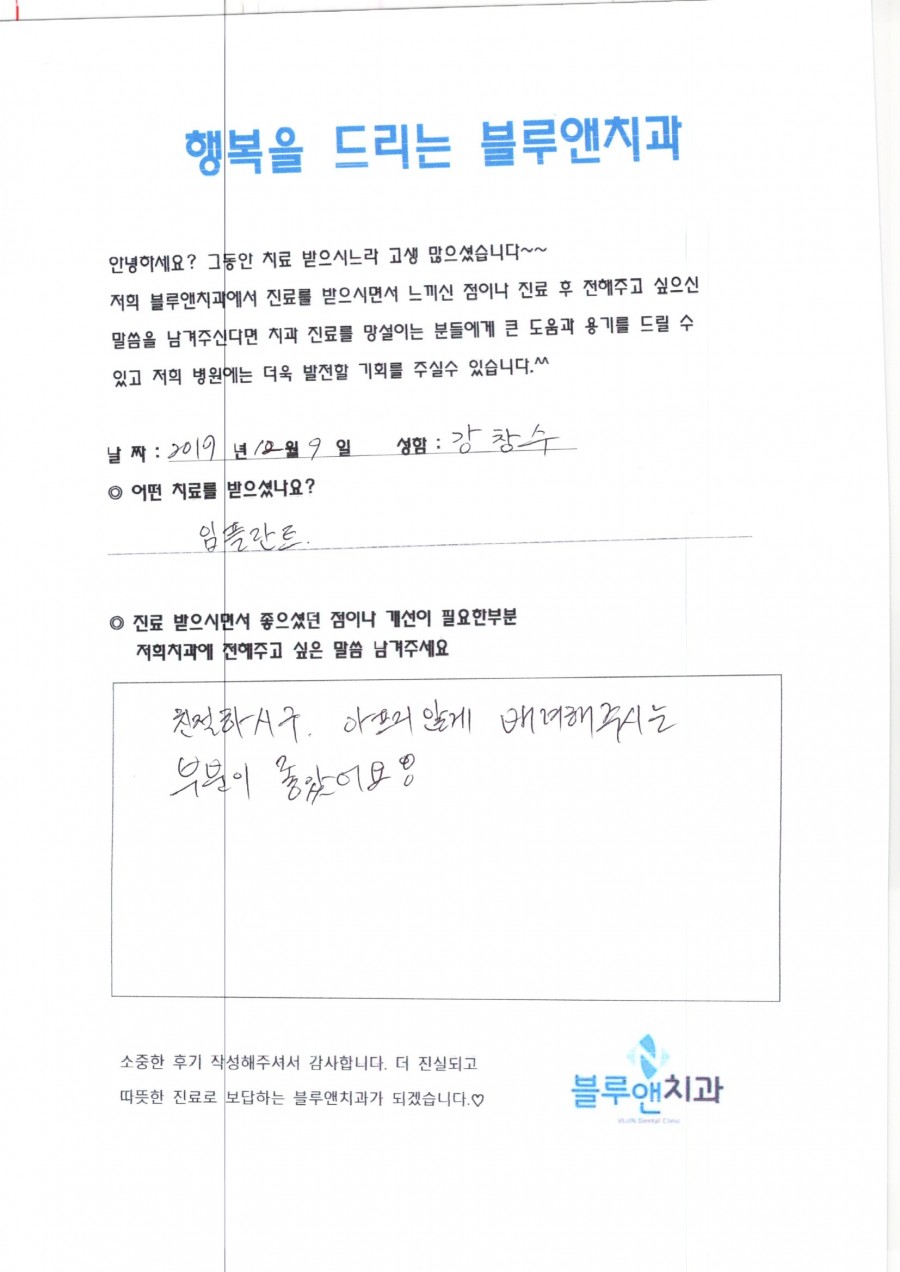 행복을 드리는 블루앤치과
안녕하세요? 그동안 치료 받으시느라 고생 많으셨습니다~~
저희 블루앤치과에서 진료를 받으시면서 느끼신 점이나 진료 후 전해주고 싶으신
말씀을 남겨주신다면 치과 진료를 망설이는 분들에게 큰 도움과 용기를 드릴 수
있고 저희 병원에는 더욱 발전할 기회를 주실수 있습니다.^^
날 짜 : 2019 년 12월 9 일 성함 : 강창수
◎ 어떤 치료를 받으셨나요?
임플란트.
◎ 진료 받으시면서 좋으셨던 점이나 개선이 필요한부분
저희치과에 전해주고 싶은 말씀 남겨주세요
친절하시구. 아프지않게 배려해주시는
부분이 좋았어요
소중한 후기 작성해주셔서 감사합니다. 더 진실되고
따뜻한 진료로 보답하는 블루앤치과가 되겠습니다.♡
블루앤치과